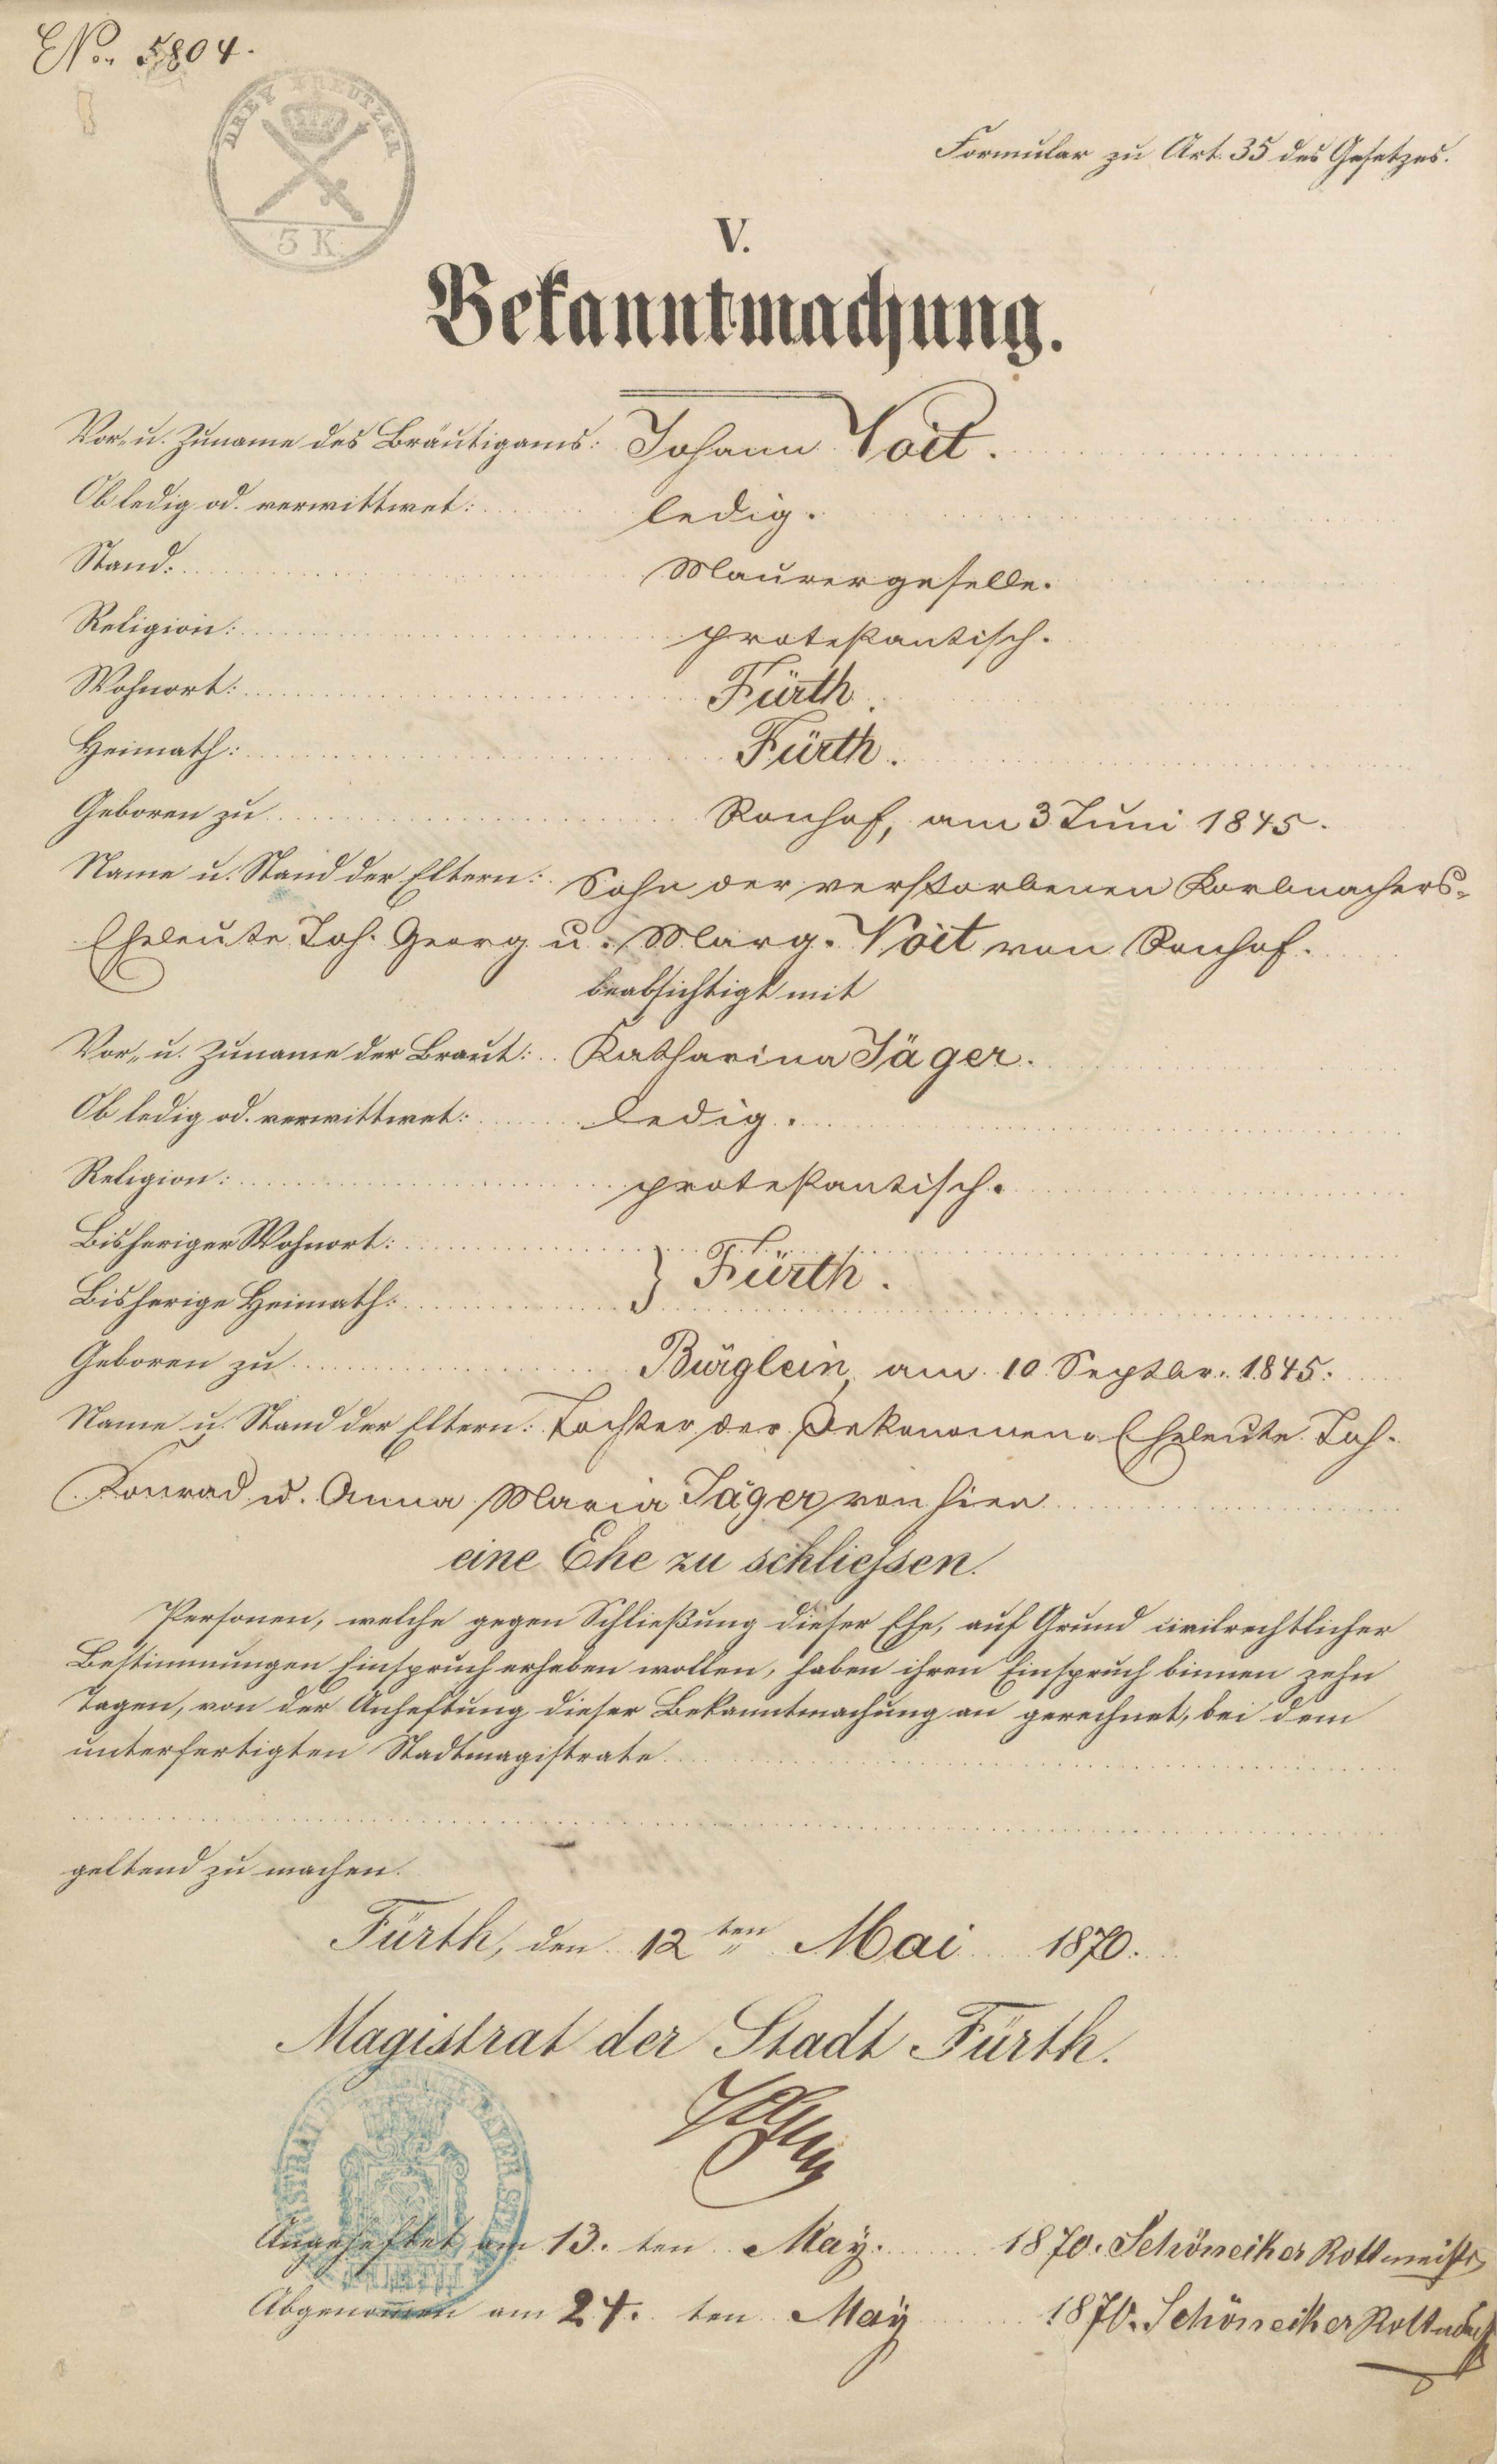 ENo. 5804.
DREY KREUTZER
3 K.
Formular zu Art. 35 des Gesetzes.
V.
Bekanntmachung.
Vor- u. Zuname des Bräutigams: Johann Voit.
Ob ledig od. verwittwet: ledig.
Stand: Maurergeselle.
Religion: protestantisch.
Wohnort: Fürth.
Heimath: Fürth.
Geboren zu Ronhof, am 3 Juni 1845.
Name u. Stand der Eltern: Sohn der verstorbenen Korbmachers-
Eheleute Joh. Georg u. Marg. Voit von Ronhof.
beabsichtigt mit
Vor- u. Zuname der Braut: Katharina Jäger.
Ob ledig od. verwittwet: ledig.
Religion: protestantisch.
Bisheriger Wohnort:
} Fürth.
Bisherige Heimath:
Geboren zu Bürglein, am 10 Septbr. 1845.
Name u. Stand der Eltern: Tochter der Oekonomen-Eheleute Joh.
Konrad u. Anna Maria Jäger von hier
eine Ehe zu schliessen.
Personen, welche gegen Schließung dieser Ehe, auf Grund civilrechtlicher
Bestimmungen Einspruch erheben wollen, haben ihren Einspruch binnen zehn
Tagen, von der Anheftung dieser Bekanntmachung an gerechnet, bei dem
unterfertigten Stadtmagistrate
geltend zu machen.
Fürth, den 12ten Mai 1870.
Magistrat der Stadt Fürth.
Angeheftet am 13. ten May. 1870. Schöneiker Rottmeister
Abgenommen am 24. ten May 1870. Schöneiker